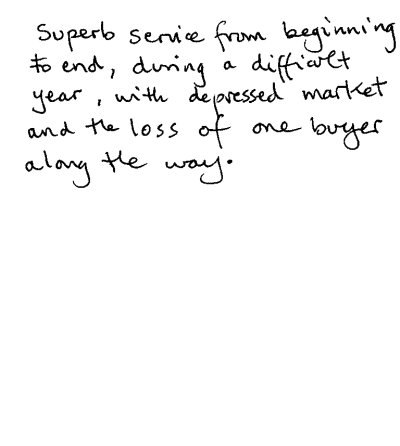 Superb service from beginning
to end, during a difficult
year, with depressed market
and the loss of one buyer
along the way.